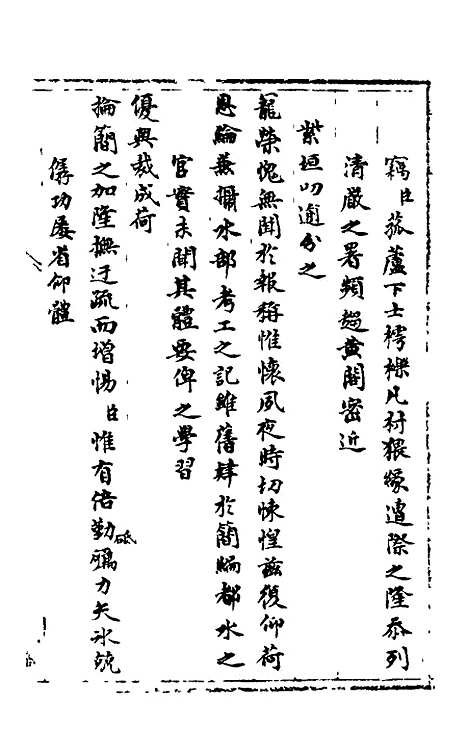 竊臣菰蘆下士樗櫟凡材猥緣遭際之隆忝列
清嚴之署頻趨黃閣密近
紫垣叨逾分之
寵榮愧無聞於報稱惟懷夙夜時切悚惶茲復仰荷
恩綸兼攝水部考工之記雖舊肄於簡編都水之
官實未聞其體要俾之學習
優與裁成荷
掄簡之加隆撫迂疏而增惕臣惟有倍勤砥礪力矢冰兢
僝功屢省仰體